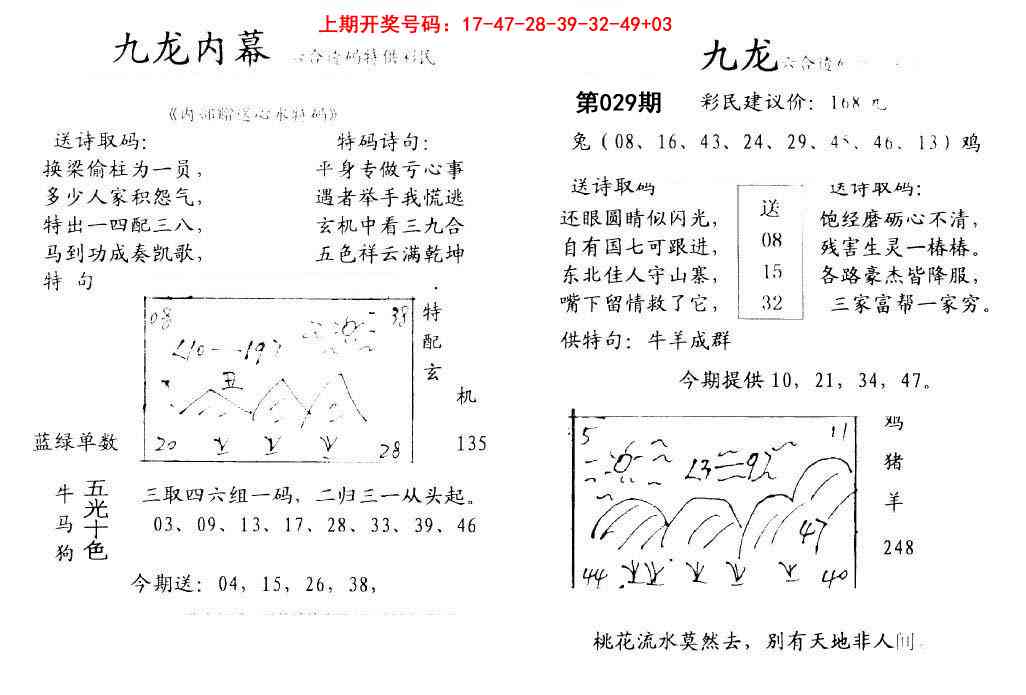 上期开奖号码：17-47-28-39-32-49+03
九龙内幕
送诗取码：
换梁偷柱为一员，
多少人家积怨气，
特出一四配三八，
马到功成奏凯歌，
特 句
特码诗句：
平身专做亏心事
遇者举手我慌逃
玄机中看三九合
五色祥云满乾坤
08
38
丑
20
28
特
配
玄
机
135
蓝绿单数
牛
马
狗
五
光
十
色
三取四六组一码，二归三一从头起。
03、09、13、17、28、33、39、46
今期送：04，15，26，38，
九龙
第029期
彩民建议价：168元
兔（08、16、43、24、29、45、46、13）鸡
送诗取码
还眼圆睛似闪光，
自有国七可跟进，
东北佳人守山寨，
嘴下留情救了它，
送
08
15
32
送诗取码：
饱经磨砺心不清，
残害生灵一椿椿。
各路豪杰皆降服，
三家富帮一家穷。
供特句：牛羊成群
今期提供10，21，34，47。
5
11
47
44
40
鸡
猪
羊
248
桃花流水莫然去，别有天地非人间